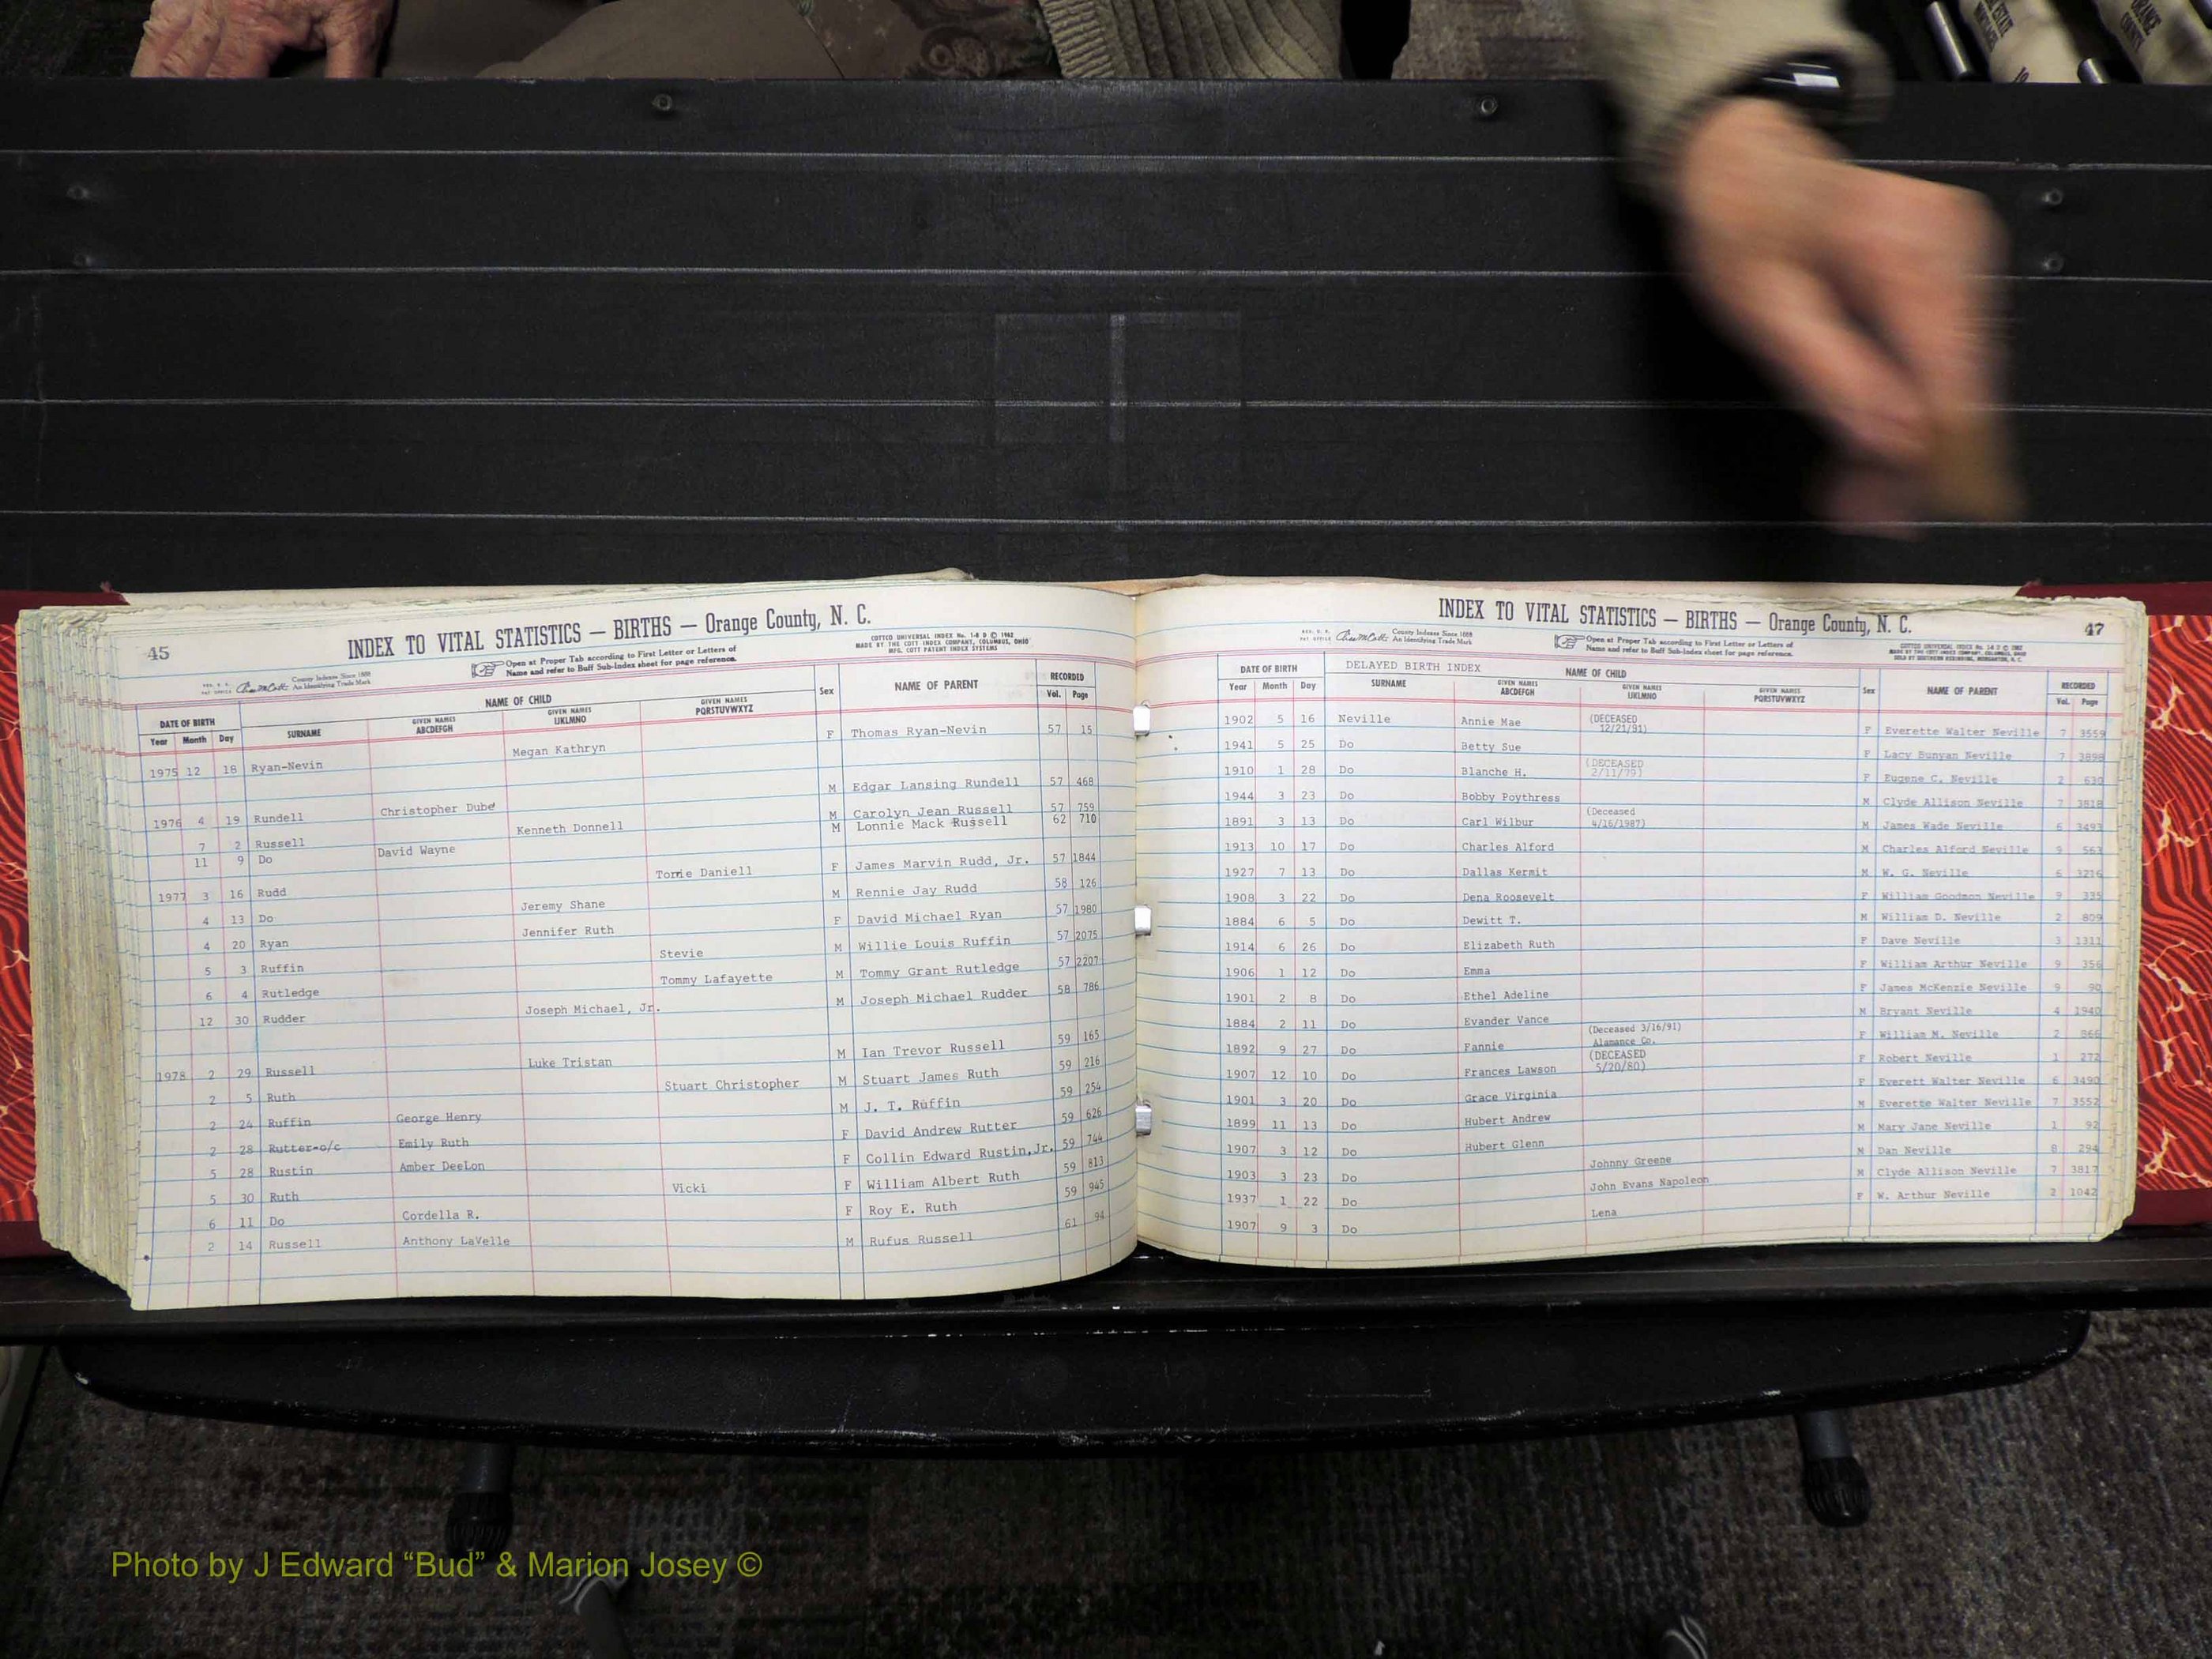 ESTATE
ORANGE
COUNTY
45
INDEX TO VITAL STATISTICS — BIRTHS — Orange County, N. C.
COTTCO UNIVERSAL INDEX No. 1-8 D © 1962
MADE BY THE COTT INDEX COMPANY, COLUMBUS, OHIO
MFG. COTT PATENT INDEX SYSTEMS
County Indexes Since 1888
An Identifying Trade Mark
Open at Proper Tab according to First Letter or Letters of
Name and refer to Buff Sub-Index sheet for page reference.
DATE OF BIRTH NAME OF CHILD Sex NAME OF PARENT RECORDED
Year Month Day SURNAME GIVEN NAMES ABCDEFGH GIVEN NAMES IJKLMNO GIVEN NAMES PQRSTUVWXYZ Vol. Page
1975 12 18 Ryan-Nevin Megan Kathryn F Thomas Ryan-Nevin 57 15
1976 4 19 Rundell Christopher Dube M Edgar Lansing Rundell 57 468
7 2 Russell Kenneth Donnell M Carolyn Jean Russell 57 759
11 9 Do David Wayne M Lonnie Mack Russell 62 710
1977 3 16 Rudd Torrie Daniell F James Marvin Rudd, Jr. 57 1844
4 13 Do Jeremy Shane M Rennie Jay Rudd 58 126
4 20 Ryan Jennifer Ruth F David Michael Ryan 57 1980
5 3 Ruffin Stevie M Willie Louis Ruffin 57 2075
6 4 Rutledge Tommy Lafayette M Tommy Grant Rutledge 57 2207
12 30 Rudder Joseph Michael, Jr. M Joseph Michael Rudder 58 786
1978 2 29 Russell Luke Tristan M Ian Trevor Russell 59 165
2 5 Ruth Stuart Christopher M Stuart James Ruth 59 216
2 24 Ruffin George Henry M J. T. Ruffin 59 254
2 28 Rutter-o/c Emily Ruth F David Andrew Rutter 59 626
5 28 Rustin Amber DeeLon F Collin Edward Rustin, Jr. 59 744
5 30 Ruth Vicki F William Albert Ruth 59 813
6 11 Do Cordella R. F Roy E. Ruth 59 945
2 14 Russell Anthony LaVelle M Rufus Russell 61 94
INDEX TO VITAL STATISTICS — BIRTHS — Orange County, N. C.
47
County Indexes Since 1888
An Identifying Trade Mark
Open at Proper Tab according to First Letter or Letters of
Name and refer to Buff Sub-Index sheet for page reference.
DATE OF BIRTH DELAYED BIRTH INDEX NAME OF CHILD Sex NAME OF PARENT RECORDED
Year Month Day SURNAME GIVEN NAMES ABCDEFGH GIVEN NAMES IJKLMNO GIVEN NAMES PQRSTUVWXYZ Vol. Page
1902 5 16 Neville Annie Mae (DECEASED 12/21/91) F Everette Walter Neville 7 3559
1941 5 25 Do Betty Sue F Lacy Bunyan Neville 7 3898
1910 1 28 Do Blanche H. (DECEASED 2/11/79) F Eugene C. Neville 2 630
1944 3 23 Do Bobby Poythress M Clyde Allison Neville 7 3818
1891 3 13 Do Carl Wilbur (Deceased 4/16/1987) M James Wade Neville 6 3493
1913 10 17 Do Charles Alford M Charles Alford Neville 9 563
1927 7 13 Do Dallas Kermit M W. G. Neville 6 3216
1908 3 22 Do Dena Roosevelt F William Goodmon Neville 9 335
1884 6 5 Do Dewitt T. M William D. Neville 2 809
1914 6 26 Do Elizabeth Ruth F Dave Neville 3 1311
1906 1 12 Do Emma F William Arthur Neville 9 356
1901 2 8 Do Ethel Adeline F James McKenzie Neville 9 90
1884 2 11 Do Evander Vance M Bryant Neville 4 1940
1892 9 27 Do Fannie (Deceased 3/16/91) Alamance Co. F William M. Neville 2 866
1907 12 10 Do Frances Lawson (DECEASED 5/20/80) F Robert Neville 1 272
1901 3 20 Do Grace Virginia F Everett Walter Neville 6 3490
1899 11 13 Do Hubert Andrew M Everette Walter Neville 7 3552
1907 3 12 Do Hubert Glenn M Mary Jane Neville 1 92
1903 3 23 Do Johnny Greene M Dan Neville 8 294
1937 1 22 Do John Evans Napoleon M Clyde Allison Neville 7 3817
1907 9 3 Do Lena F W. Arthur Neville 2 1042
Photo by J Edward “Bud” & Marion Josey ©